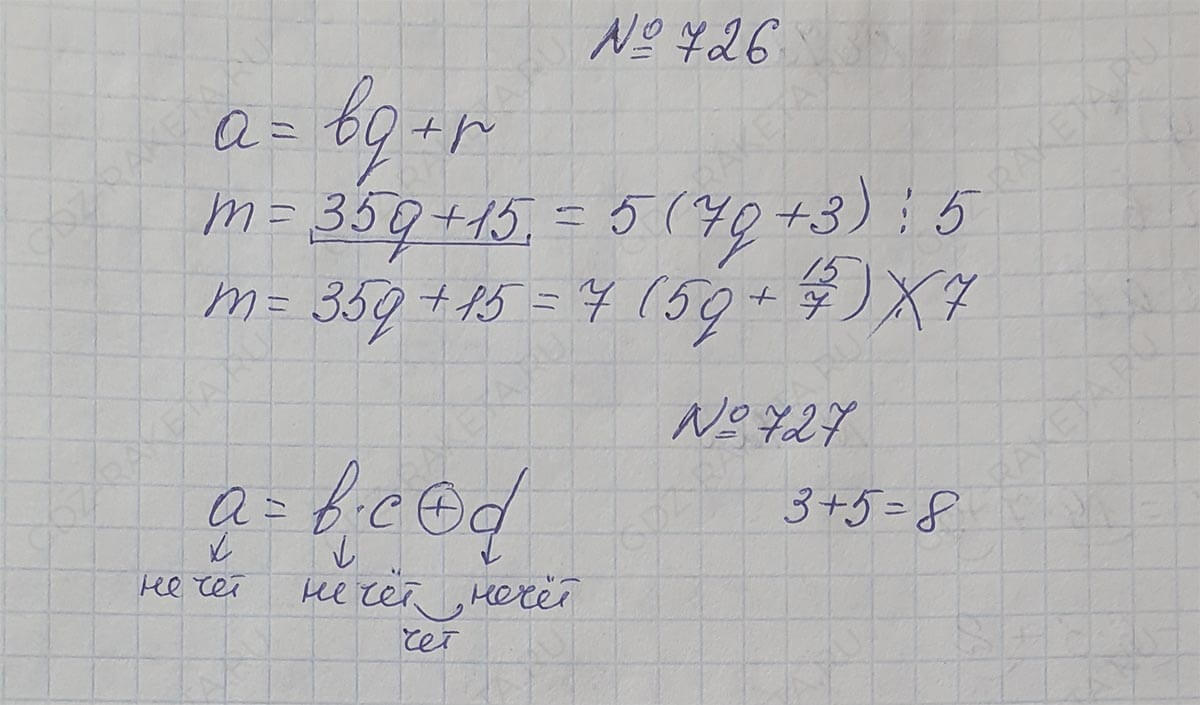 № 726
a = bq + r
m = 35q + 15 = 5 (7q + 3) ⋮ 5
m = 35q + 15 = 7 (5q + 15/7) ⋮̸ 7
№ 727
a = b · c ⊕ d 3 + 5 = 8
нечет нечёт нечёт
чет
GDZ-RAKETA.RU